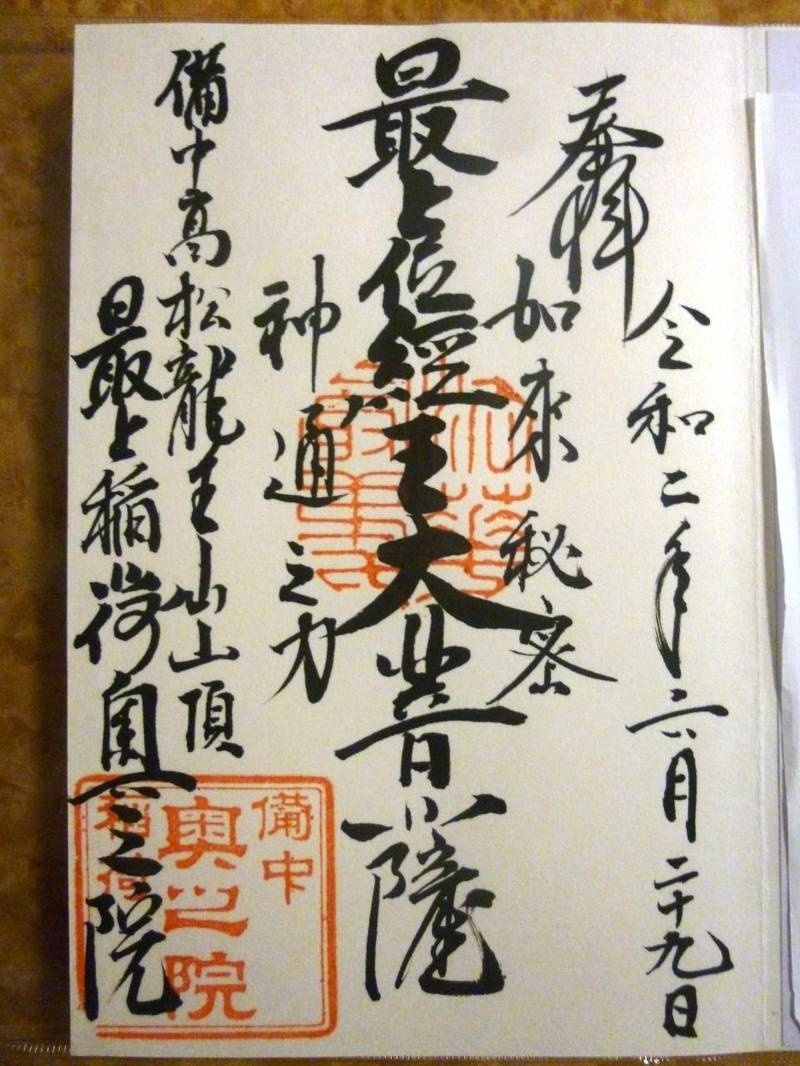 奉拝
令和二年六月二十九日
如来秘密
最上位經王大菩薩
神通之力
備中高松龍王山山頂
最上稲荷奥之院
備中
奥之院
稲荷